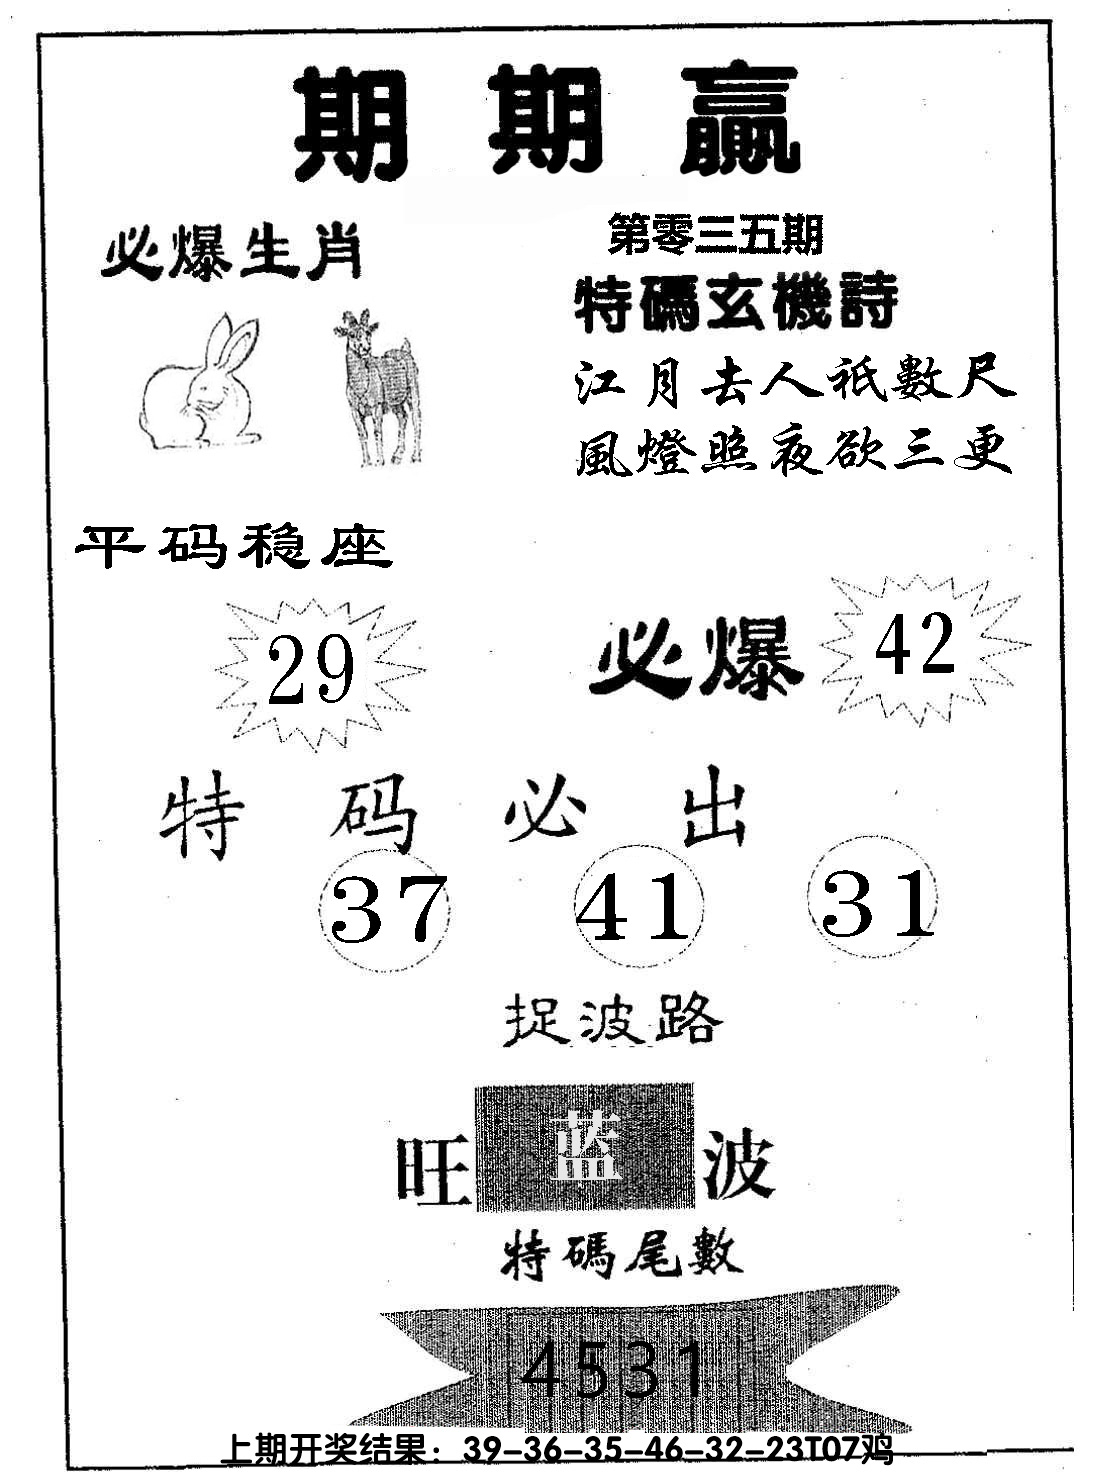 期期贏
必爆生肖
第零三五期
特碼玄機詩
江月去人祇數尺
風燈照夜欲三更
平码稳座
29
必爆 42
特码必出
37 41 31
捉波路
旺 蓝 波
特碼尾數
4531
上期开奖结果：39-36-35-46-32-23T07鸡